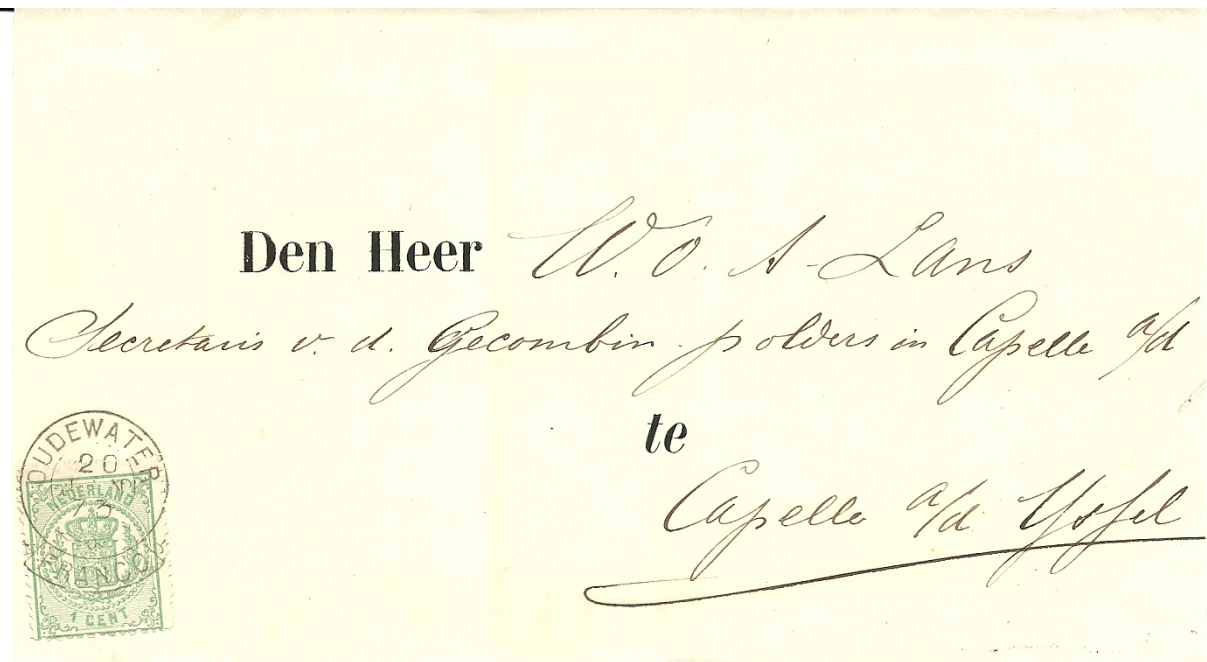 Den Heer W. O. A. Lans
Secretaris v. d. Gecombin. polders in Capelle a/d
te
Capelle a/d Yssel
OUDEWATER
20
73
FRANCO
NEDERLAND
1 CENT